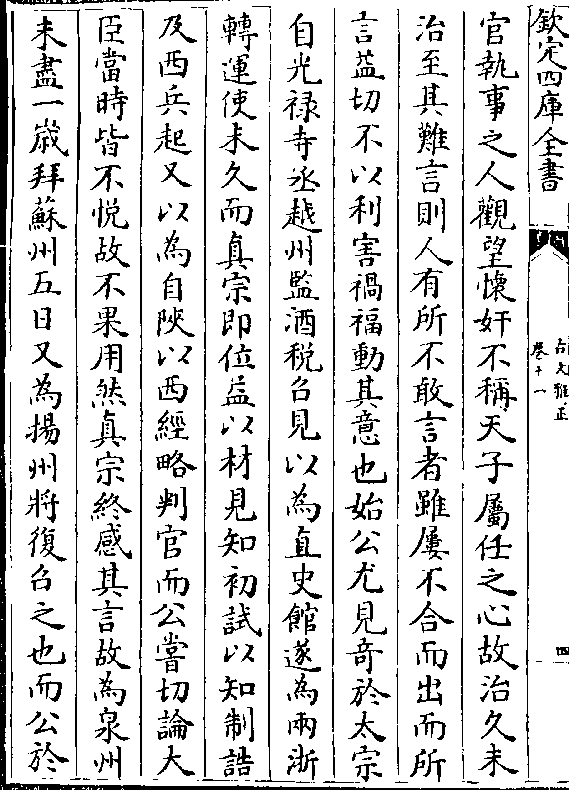 欽定四庫全書
古文雅正
卷十一
四
官執事之人觀望懷奸不稱天子屬任之心故治久未
治至其難言則人有所不敢言者雖屢不合而出而所
言益切不以利害禍福動其意也始公尤見竒於太宗
自光禄寺丞越州監酒税召見以為直史館遂為兩浙
轉運使未久而真宗即位益以材見知初試以知制誥
及西兵起又以為自陜以西經略判官而公嘗切論大
臣當時皆不悅故不果用然真宗終感其言故為泉州
未盡一歲拜蘇州五日又為揚州將復召之也而公於